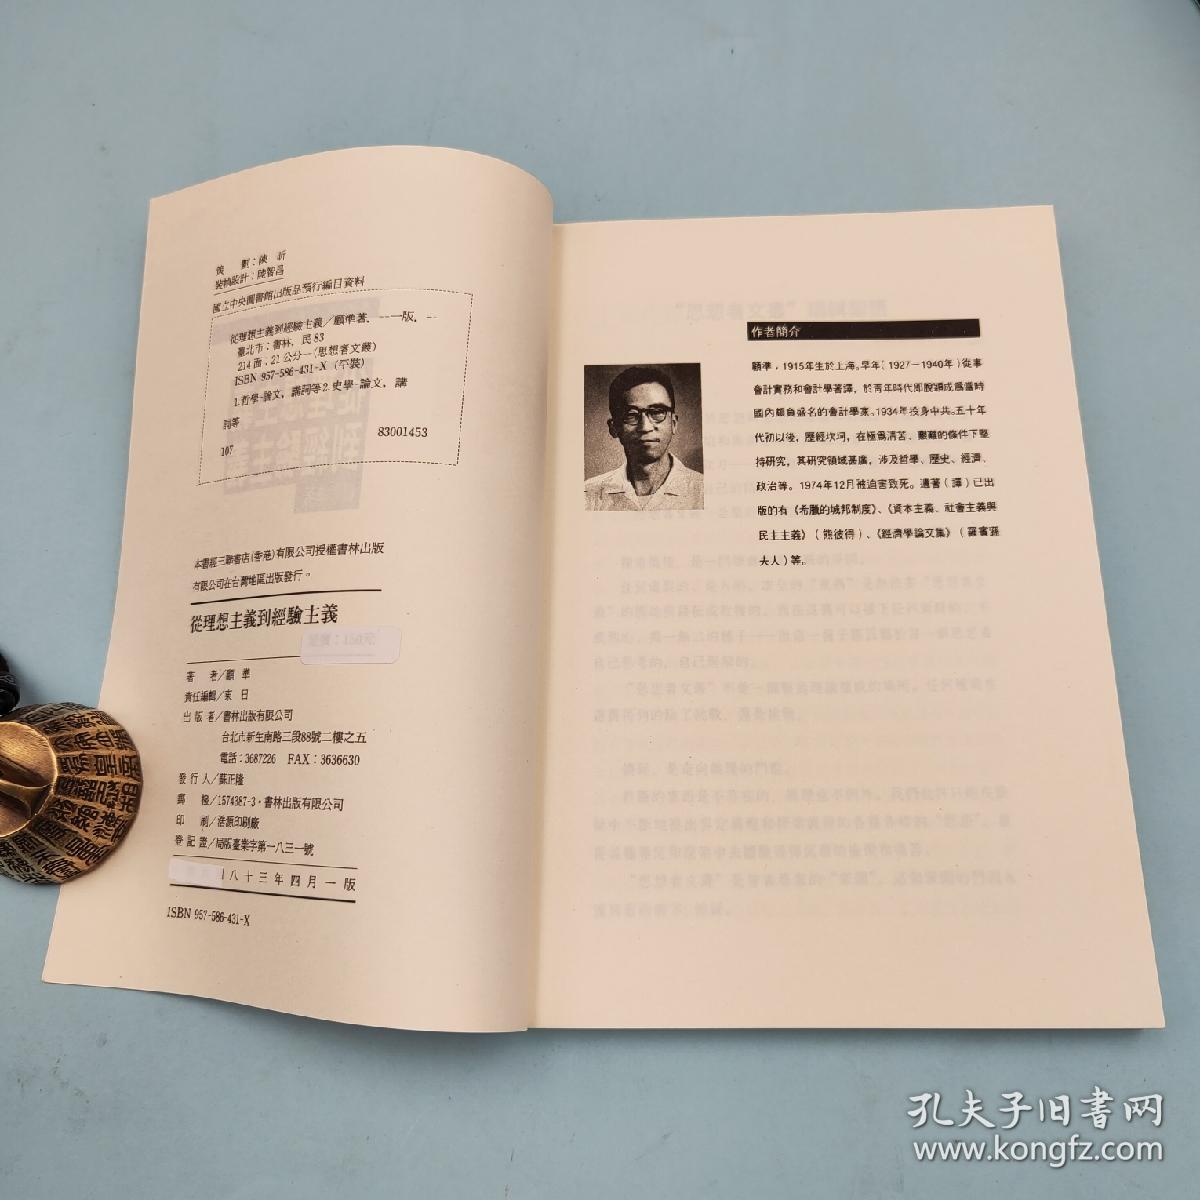 策 劃：陳 昕
裝幀設計：陸智昌
國立中央圖書館出版品預行編目資料
從理想主義到經驗主義／顧準著. ——一版. —
臺北市：書林，民83
214面：21公分—(思想者文叢)
ISBN 957-586-431-X (平裝)
1.哲學-論文，講詞等 2.史學-論文，講
詞等
107
83001453
本書經三聯書店(香港)有限公司授權書林出版
有限公司在台灣地區出版發行。
從理想主義到經驗主義
定價：150元
著 者／顧 準
責任編輯／東 日
出 版 者／書林出版有限公司
台北市新生南路二段88號二樓之五
電話：3687226 FAX：3636630
發 行 人／蘇正隆
郵 撥／1574387-3・書林出版有限公司
印 刷／
登 記 證／局版臺業字第一八三一號
八十三年四月一版
ISBN 957-586-431-X
作者簡介
顧準，1915年生於上海。早年（1927－1940年）從事
會計實務和會計學著譯，於青年時代即脫穎成爲當時
國內頗負盛名的會計學家。1934年投身中共。五十年
代初以後，歷經坎坷，在極爲清苦、艱難的條件下堅
持研究，其研究領域甚廣，涉及哲學、歷史、經濟、
政治等。1974年12月被迫害致死。遺著（譯）已出
版的有《希臘的城邦制度》、《資本主義、社會主義與
民主主義》（熊彼得）、《經濟學論文集》（羅賓遜
夫人）等。
孔夫子旧书网
www.kongfz.com